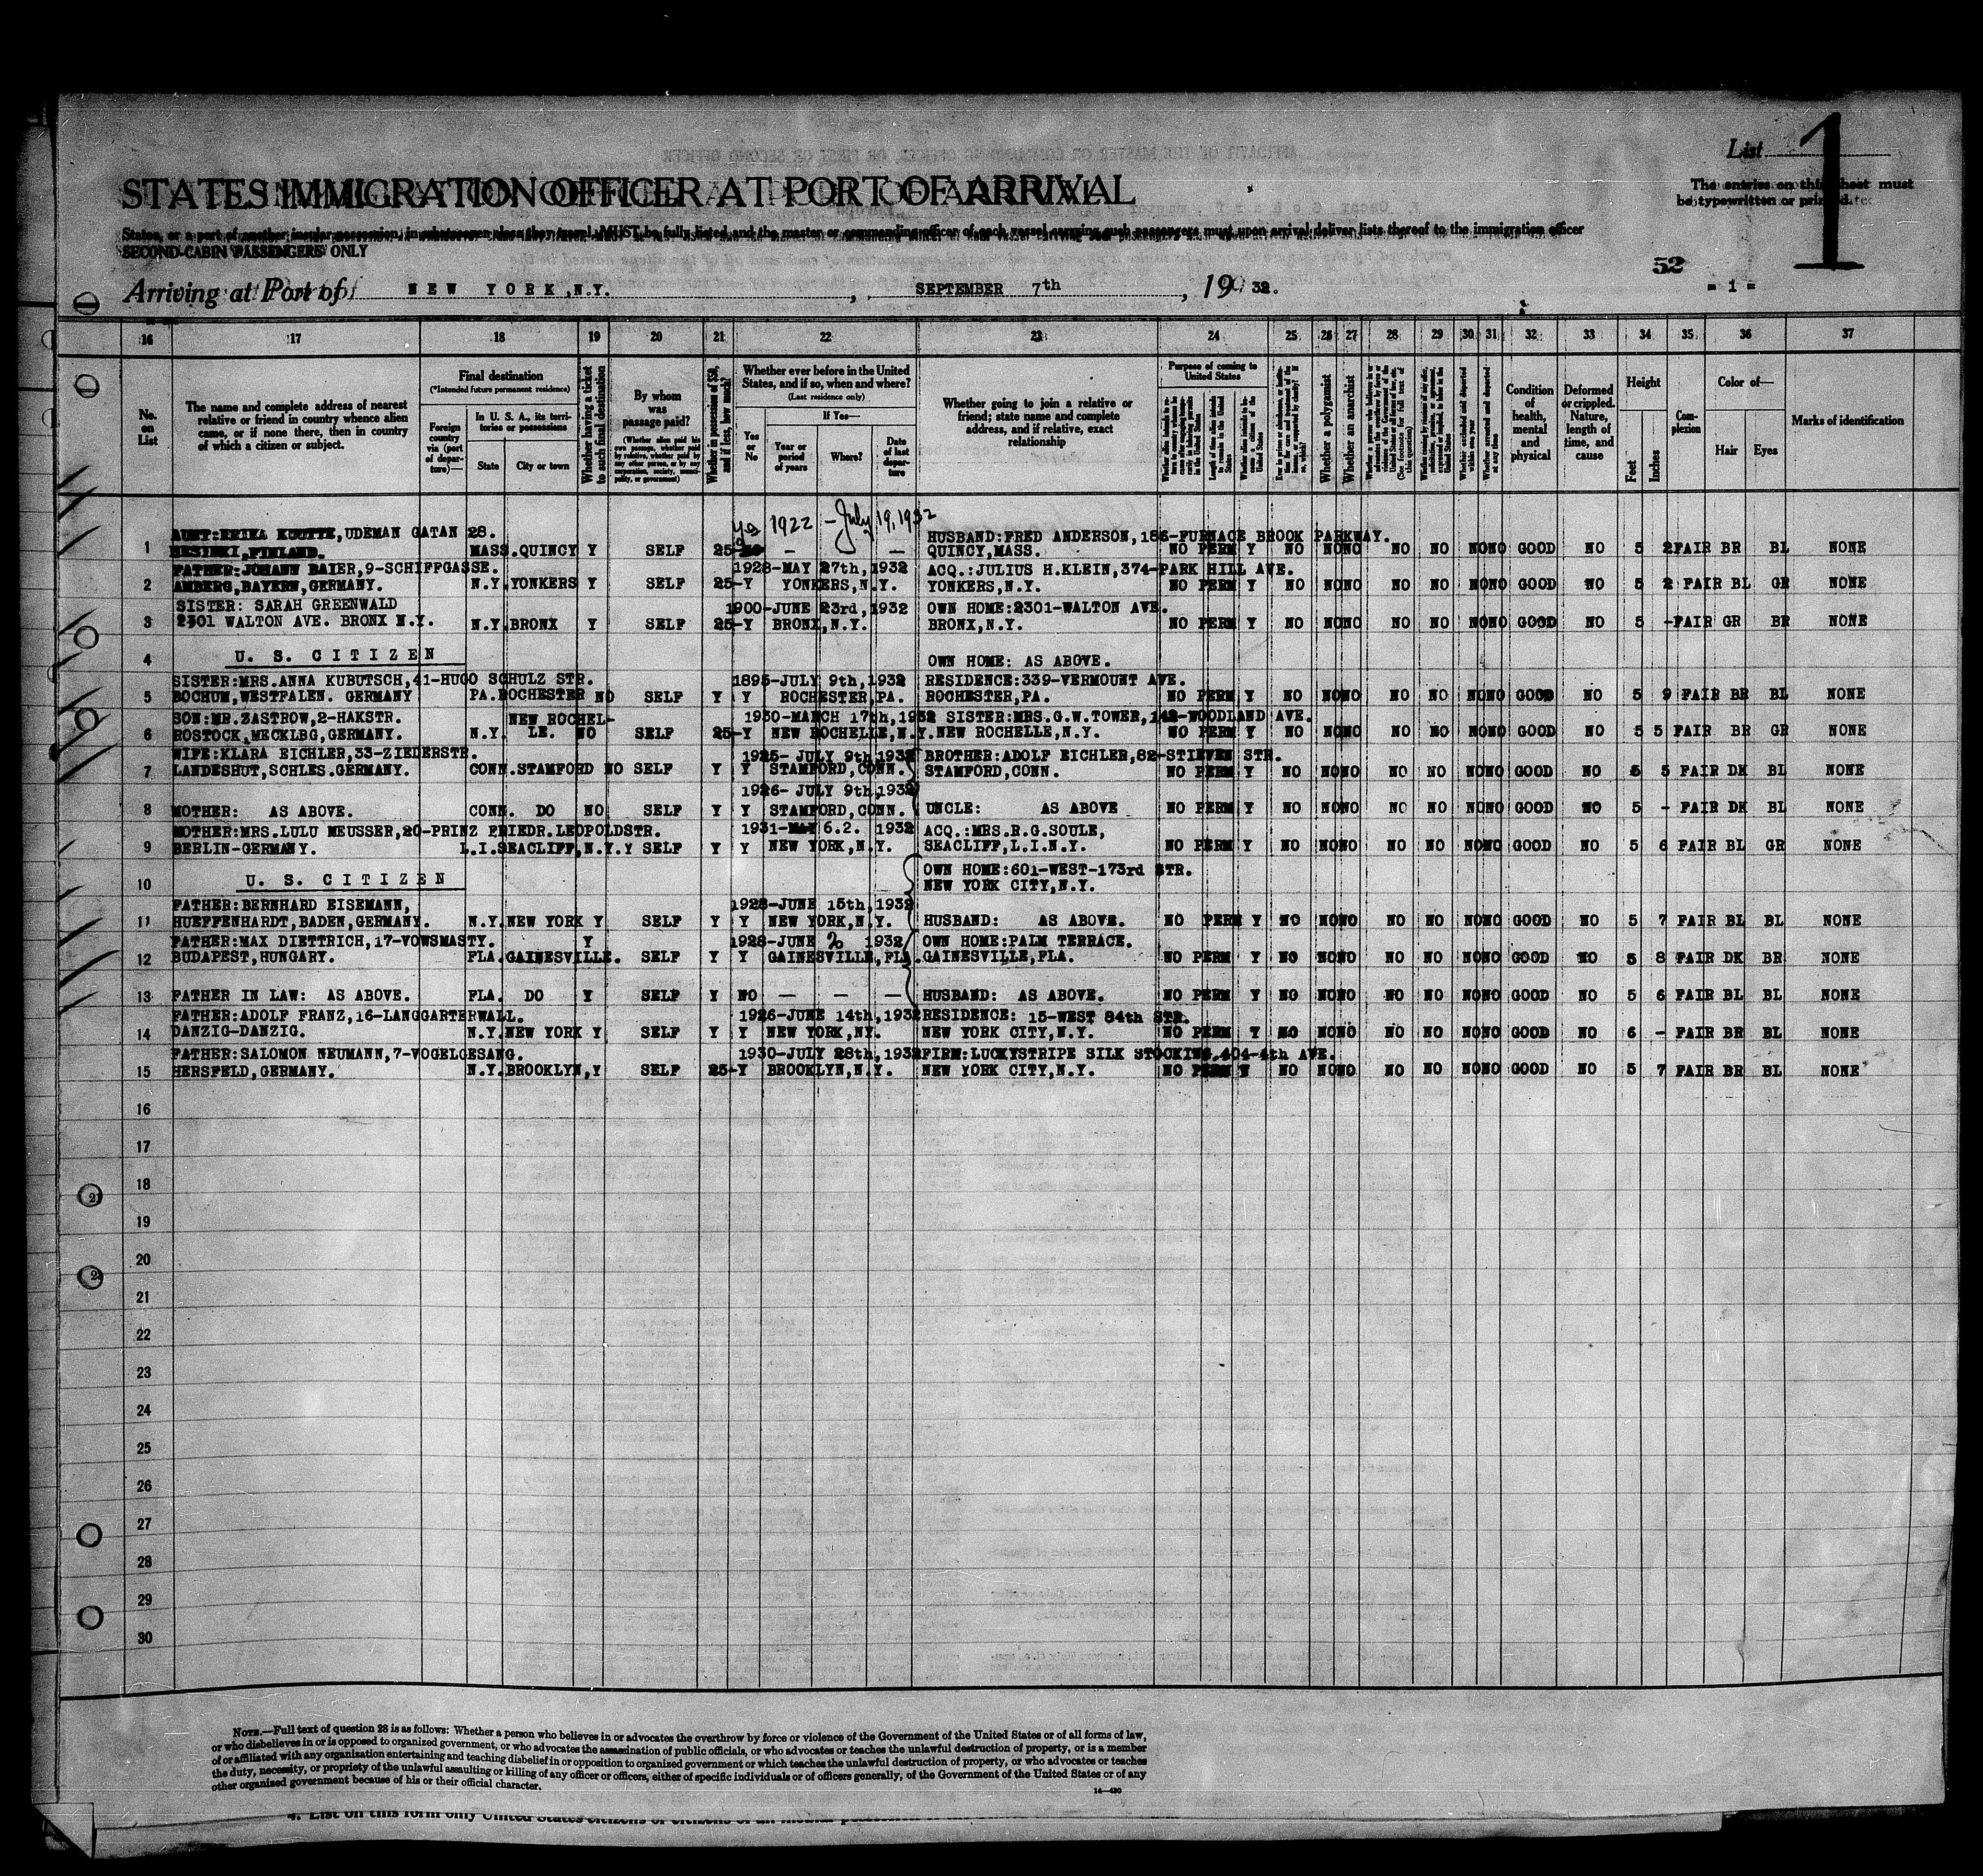 List 1
STATES IMMIGRATION OFFICER AT PORT OF ARRIVAL
The entries on this sheet must
be typewritten or printed.
States, or a part of another insular possession, in whatsoever class they travel, MUST be fully listed and the master or commanding officer of each vessel carrying such passengers must upon arrival deliver lists thereof to the immigration officer
SECOND-CABIN PASSENGERS ONLY
52
Arriving at Port of NEW YORK,N.Y. , SEPTEMBER 7th , 1932.
- 1 -
16 17 18 19 20 21 22 23 24 25 26 27 28 29 30 31 32 33 34 35 36 37
No. on List
The name and complete address of nearest relative or friend in country whence alien came, or if none there, then in country of which a citizen or subject.
Final destination
(*Intended future permanent residence)
Foreign country via (port of departure)—
In U. S. A., its territories or possessions
State City or town
Whether having a ticket to such final destination
By whom was passage paid?
(Whether alien paid his own passage, whether paid by relative, whether paid by any other person, or by any corporation, society, municipality, or government)
Whether in possession of $50, and if less, how much?
Whether ever before in the United States, and if so, when and where?
(Last residence only)
Yes or No
If Yes—
Year or period of years
Where?
Date of last departure
Whether going to join a relative or friend; state name and complete address, and if relative, exact relationship
Purpose of coming to United States
Length of time alien intends to remain in the United States
Whether alien intends to become a citizen of the United States
Whether a polygamist
Whether an anarchist
Whether excluded and deported within one year
Whether arrested and deported at any time
Condition of health, mental and physical
Deformed or crippled. Nature, length of time, and cause
Height
Feet Inches
Complexion
Color of—
Hair Eyes
Marks of identification
yes 1922 - July 19, 1932
AUNT:ERIKA KOUTTE,UDEMAN GATAN 28. HUSBAND:FRED ANDERSON,186-FURNACE BROOK PARKWAY.
1 HESINKI,FINLAND. MASS.QUINCY Y SELF 25- NO — — QUINCY,MASS. NO PERM Y NO NO NO NO NO NO NO GOOD NO 5 2 FAIR BR BL NONE
FATHER:JOHANN BAIER,9-SCHIFFGASSE. 1928-MAY 27th,1932 ACQ.:JULIUS H.KLEIN,374-PARK HILL AVE.
2 AMBERG,BAYERN,GERMANY. N.Y.YONKERS Y SELF 25-Y YONKERS,N.Y. YONKERS,N.Y. NO PERM Y NO NO NO NO NO NO NO GOOD NO 5 2 FAIR BL GR NONE
SISTER: SARAH GREENWALD 1900-JUNE 23rd,1932 OWN HOME:2301-WALTON AVE.
3 2301 WALTON AVE. BRONX N.Y. N.Y.BRONX Y SELF 25-Y BRONX,N.Y. BRONX,N.Y. NO PERM Y NO NO NO NO NO NO NO GOOD NO 5 - FAIR GR BR NONE
4 U. S. CITIZEN OWN HOME: AS ABOVE.
SISTER:MRS.ANNA KUBUTSCH,41-HUGO SCHULZ STR. 1895-JULY 9th,1932 RESIDENCE:339-VERMOUNT AVE.
5 BOCHUM,WESTFALEN. GERMANY PA.ROCHESTER NO SELF Y Y ROCHESTER,PA. ROCHESTER,PA. NO PERM Y NO NO NO NO NO NO NO GOOD NO 5 9 FAIR BR BL NONE
SON:MR.ZASTROW,2-HAKSTR. NEW ROCHEL- 1930-MARCH 17th,1932 SISTER:MRS.G.W.TOWER,142-WOODLAND AVE.
6 ROSTOCK,MECKLBG,GERMANY. N.Y. LE. NO SELF 25-Y NEW ROCHELLE,N.Y. NEW ROCHELLE,N.Y. NO PERM Y NO NO NO NO NO NO NO GOOD NO 5 5 FAIR BR GR NONE
WIFE:KLARA EICHLER,33-ZIEDERSTR. 1925- JULY 9th,1932 BROTHER:ADOLF EICHLER,82-STIEVEN STR.
7 LANDESHUT,SCHLES.GERMANY. CONN.STAMFORD NO SELF Y Y STAMFORD,CONN. STAMFORD,CONN. NO PERM Y NO NO NO NO NO NO NO GOOD NO 5 5 FAIR DK BL NONE
1926- JULY 9th,1932
8 MOTHER: AS ABOVE. CONN. DO NO SELF Y Y STAMFORD,CONN. UNCLE: AS ABOVE NO PERM Y NO NO NO NO NO NO NO GOOD NO 5 - FAIR DK BL NONE
MOTHER:MRS.LULU MEUSSER,20-PRINZ FRIEDR.LEOPOLDSTR. 1931-MAY 6.2. 1932 ACQ.:MRS.R.G.SOULE,
9 BERLIN-GERMANY. L.I.SEACLIFF,N.Y.Y SELF Y Y NEW YORK,N.Y. SEACLIFF,L.I.N.Y. NO PERM Y NO NO NO NO NO NO NO GOOD NO 5 6 FAIR BL GR NONE
OWN HOME:601-WEST-173rd STR.
10 U. S. CITIZEN NEW YORK CITY,N.Y.
FATHER:BERNHARD EISEMANN, 1928-JUNE 15th,1932
11 HUEFFENHARDT,BADEN,GERMANY. N.Y.NEW YORK Y SELF Y Y NEW YORK,N.Y. HUSBAND: AS ABOVE. NO PERM Y NO NO NO NO NO NO NO GOOD NO 5 7 FAIR BL BL NONE
FATHER:MAX DIETTRICH,17-VOWSMASTY. Y 1928-JUNE 1932 OWN HOME:PALM TERRACE.
12 BUDAPEST,HUNGARY. FLA.GAINESVILLE. SELF Y Y GAINESVILLE,FLA. GAINESVILLE,FLA. NO PERM Y NO NO NO NO NO NO NO GOOD NO 5 8 FAIR DK BR NONE
13 FATHER IN LAW: AS ABOVE. FLA. DO Y SELF Y NO — — — HUSBAND: AS ABOVE. NO PERM Y NO NO NO NO NO NO NO GOOD NO 5 6 FAIR BL BL NONE
FATHER:ADOLF FRANZ,16-LANGGARTERWALL. 1926-JUNE 14th,1932 RESIDENCE: 15-WEST 84th STR.
14 DANZIG-DANZIG. N.Y.NEW YORK Y SELF Y Y NEW YORK,NY. NEW YORK CITY,N.Y. NO PERM Y NO NO NO NO NO NO NO GOOD NO 6 - FAIR BR BL NONE
FATHER:SALOMON NEUMANN,7-VOGELGESANG. 1930-JULY 28th,1932 FIRM:LUCKYSTRIPE SILK STOCKING.404-4th AVE.
15 HERSFELD,GERMANY. N.Y.BROOKLYN,Y SELF 25-Y BROOKLYN,N.Y. NEW YORK CITY,N.Y. NO PERM Y NO NO NO NO NO NO NO GOOD NO 5 7 FAIR BR BL NONE
16
17
18
19
20
21
22
23
24
25
26
27
28
29
30
NOTE.—Full text of question 28 is as follows: Whether a person who believes in or advocates the overthrow by force or violence of the Government of the United States or of all forms of law,
or who disbelieves in or is opposed to organized government, or who advocates the assassination of public officials, or who advocates or teaches the unlawful destruction of property, or is a member
of or affiliated with any organization entertaining and teaching disbelief in or opposition to organized government or which teaches the unlawful destruction of property, or who advocates or teaches
the duty, necessity, or propriety of the unlawful assaulting or killing of any officer or officers, either of specific individuals or of officers generally, of the Government of the United States or of any
other organized government because of his or their official character.
14—430
4. List on this form only United States citizens or citizens of an insular